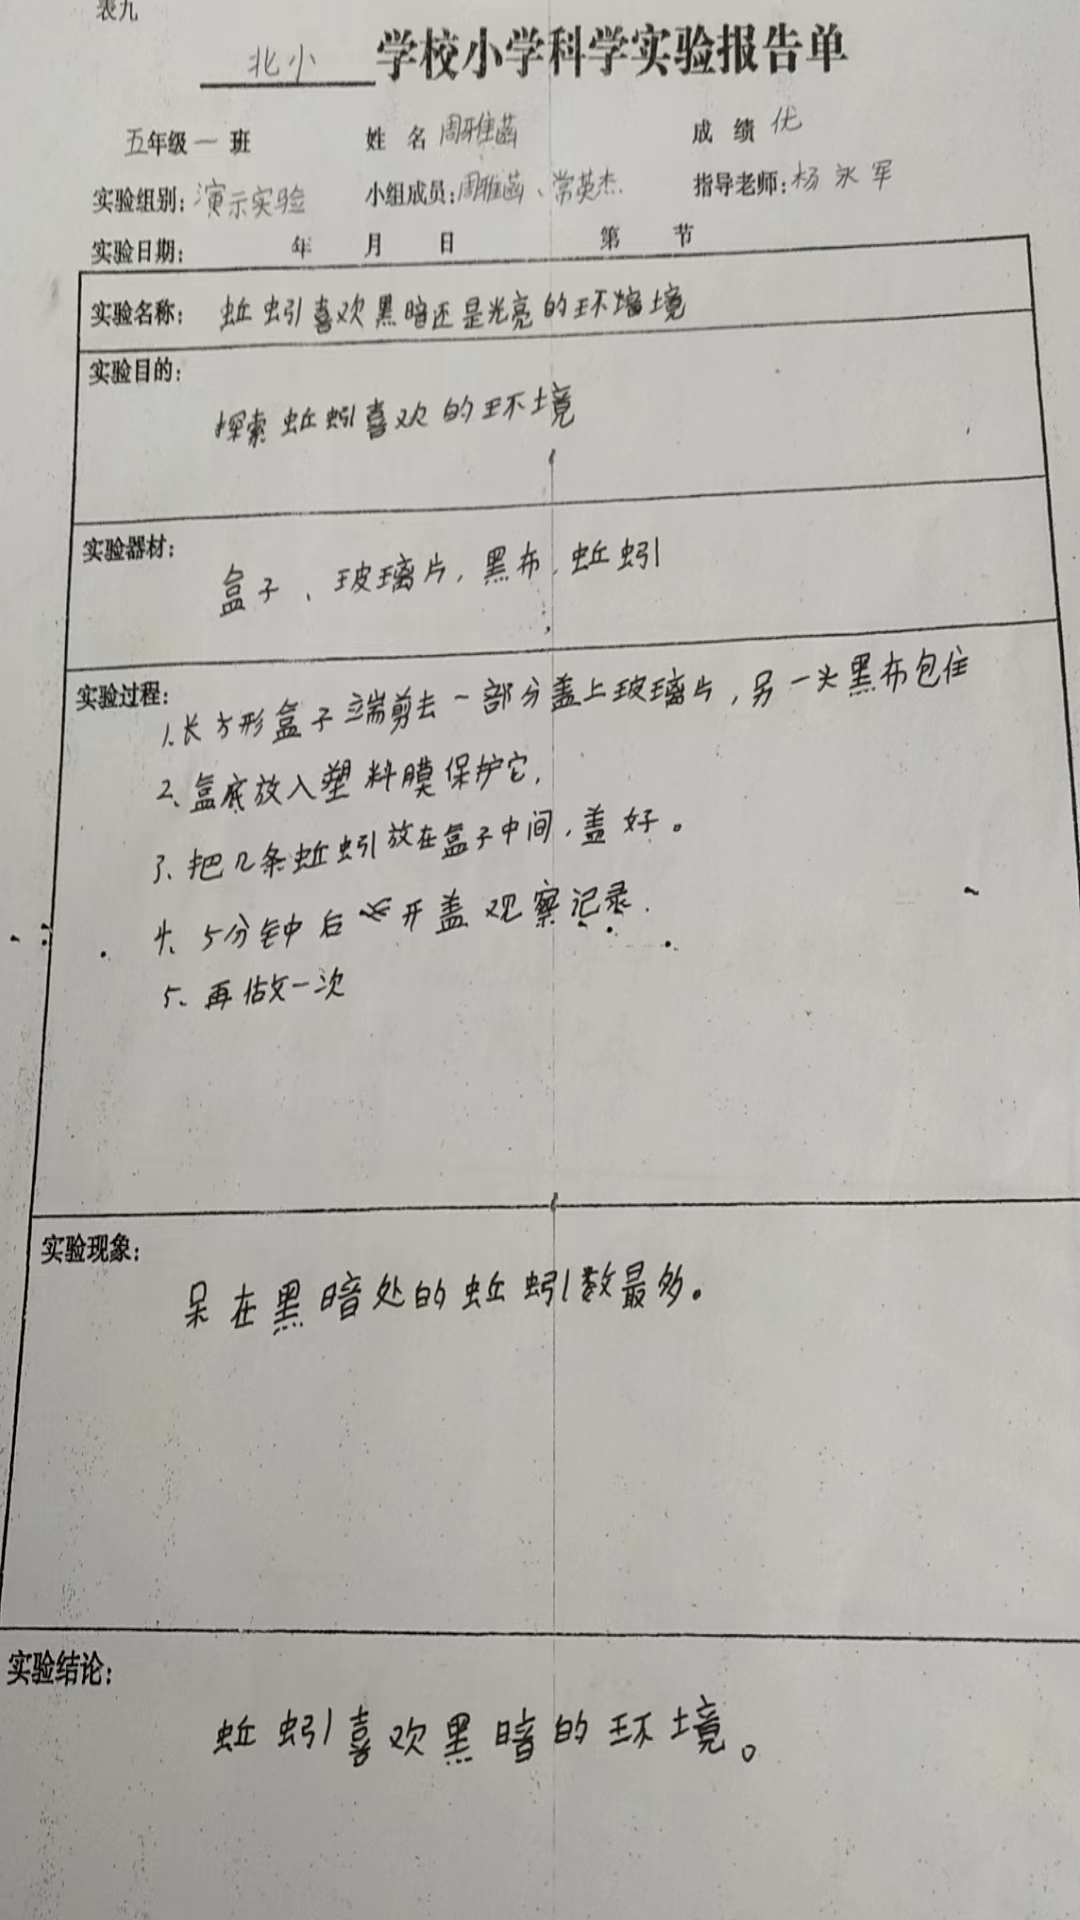 表九
北小 学校小学科学实验报告单
五年级一班 姓名 周雅菡 成绩 优
实验组别: 演示实验 小组成员: 周雅菡、常英杰. 指导老师: 杨永军
实验日期: 年 月 日 第 节
实验名称: 蚯蚓喜欢黑暗还是光亮的环境
实验目的:
探索蚯蚓喜欢的环境
实验器材:
盒子、玻璃片,黑布,蚯蚓
实验过程:
1.长方形盒子端剪去一部分盖上玻璃片,另一头黑布包住
2、盒底放入塑料膜保护它,
3、把几条蚯蚓放在盒子中间,盖好。
4、5分钟后 开盖观察记录.
5、再做一次
实验现象:
呆在黑暗处的蚯蚓数最多。
实验结论:
蚯蚓喜欢黑暗的环境。